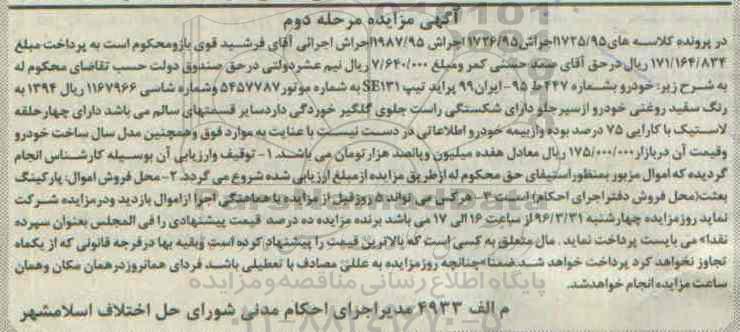 آگهی مزایده مرحله دوم
در پرونده کلاسه های ۱۷۳۵/۹۵اجراش ۱۷۲۶/۹۵ اجراش ۱۹۸۷/۹۵اجراش اجرائی آقای فرشید قوی بازومحکوم است به پرداخت مبلغ
۱۷۱/۱۶۴/۸۳۴ ریال درحق آقای صمد حسنی کمر ومبلغ ۷/۶۴۰/۰۰۰ ریال نیم عشردولتی درحق صندوق دولت حسب تقاضای محکوم له
به شرح زیر: خودرو بشماره ۴۴۷ط ۹۵ - ایران۹۹ پراید تیپ SE۱۳۱ به شماره موتور ۵۴۵۷۷۸۷ وشماره شاسی ۱۱۶۷۹۶۶ ریال ۱۳۹۴ به
رنگ سفید روغنی خودرو ازسپر جلو دارای شکستگی راست جلوی گلگیر خوردگی داردسایر قسمتهای سالم می باشد دارای چهارحلقه
لاستیک با کارایی ۷۵ درصد بوده وازبیمه خودرو اطلاعاتی در دست نیست با عنایت به موارد فوق وهمچنین مدل سال ساخت خودرو
وقیمت آن دربازار ۱۷۵/۰۰۰/۰۰۰ ریال معادل هفده میلیون وپانصد هزارتومان می باشد. ۱- توقیف وارزیابی آن بوسیله کارشناس انجام
گردیده که اموال مزبور بمنظور استیفای حق محکوم له ازطریق مزایده ازمبلغ ارزیابی شده شروع می گردد. ۲- محل فروش اموال: پارکینگ
بعثت(محل فروش دفتراجرای احکام) است ۳- هرکس می تواند ۵ روزقبل از مزایده با هماهنگی اجرا ازاموال بازدید ودرمزایده شرکت
نماید روزمزایده چهارشنبه ۹۶/۳/۳۱ از ساعت ۱۶ الی ۱۷ می باشد برنده مزایده ده درصد قیمت پیشنهادی را فی المجلس بعنوان سپرده
نقدا» می بایست پرداخت نماید . مال متعلق به کسی است که بالاترین قیمت را پیشنهاد کرده است وبقیه بها درفرجه قانونی که از یکماه
تجاوز نخواهد کرد پرداخت خواهد شد ضمنا»چنانچه روزمزایده به عللی مصادف با تعطیلی باشد فردای همانروزدرهمان مکان وهمان
ساعت مزایده انجام خواهدشد.
م الف ۴۹۳۳ مدیراجرای احکام مدنی شورای حل اختلاف اسلامشهر